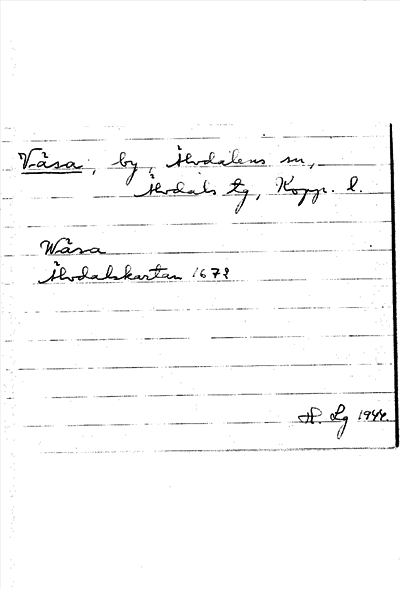 Våsa, by, Älvdalens sn,
Älvdals tg, Kopp. l.
Wåsa
Älvdalskartan 1672
H. Lg 1944.